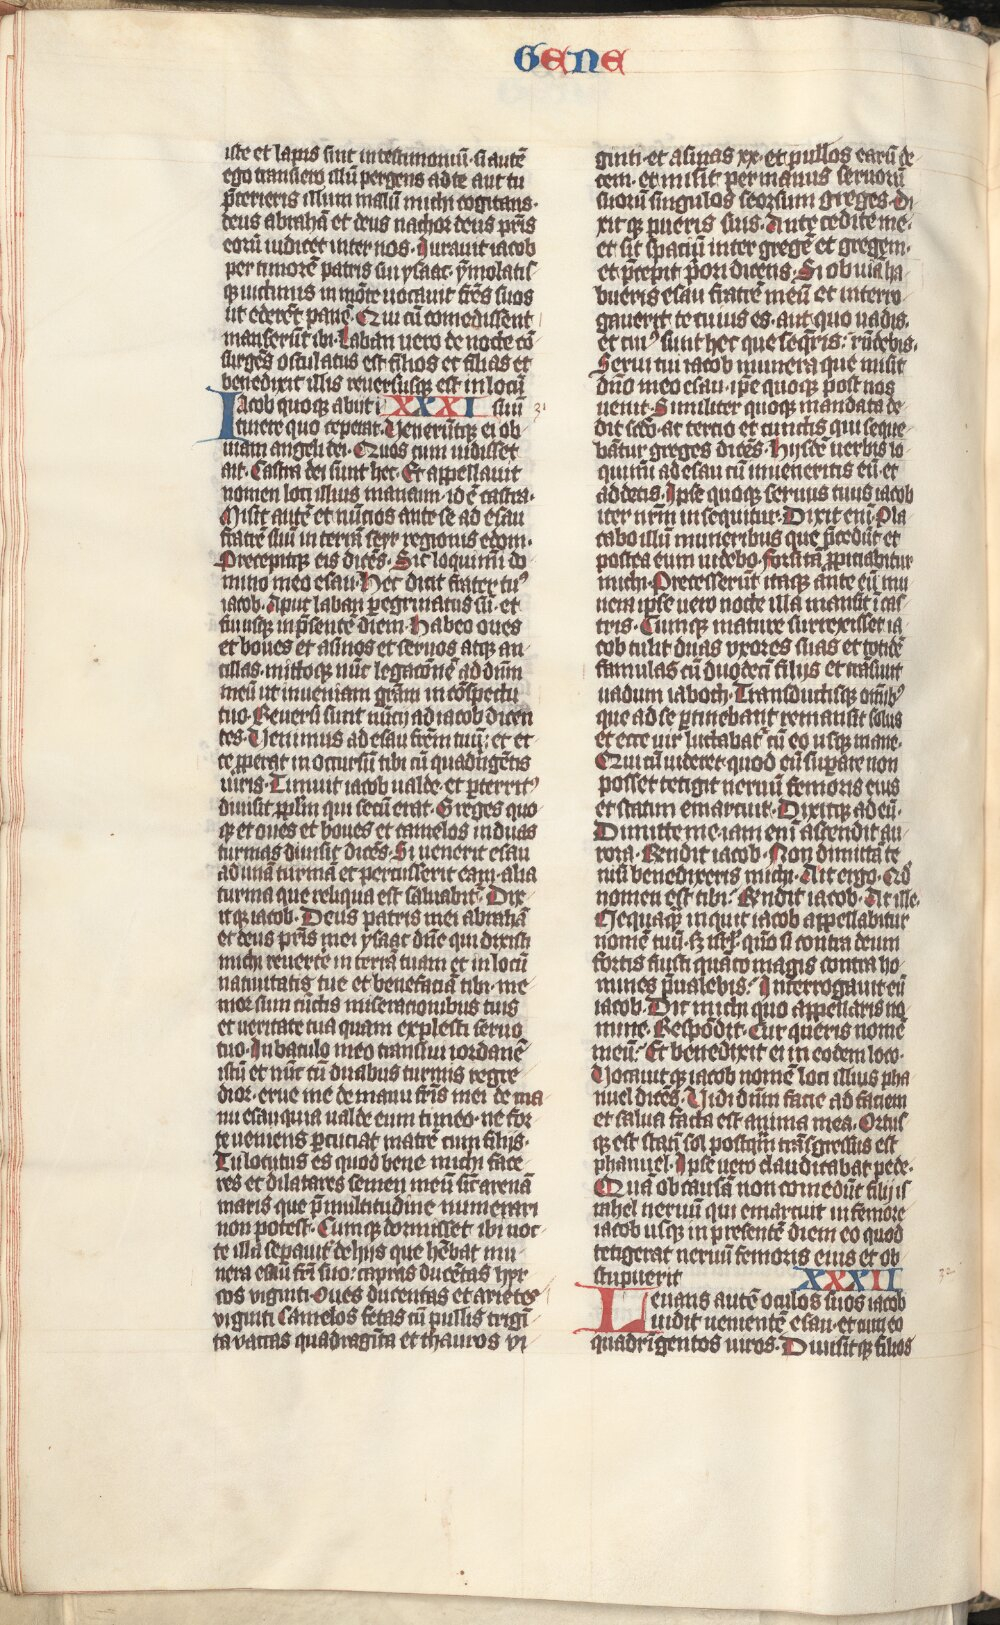 GENE
iste et lapis sint in testimoniū · si autē
ego transiero illū pergens ad te aut tu
p̄terieris illum malū michi cogitans ·
deus abrahā et deus nachor deus pr̄is
eorū iudicet inter nos · Iurauit iacob
per timorē patris sui ysaac · ymolatis
qꝫ uictimis in mōte uocauit fr̄es suos
ut ederēt panē · Qui cū comedissent
manserūt ibi · Laban uero de nocte cō
surgēs osculatus est filios et filias et
benedixit illis reuersusqꝫ est in locū
Iacob quoqꝫ abiit i XXXI suū 31
tinere quo ceperat · Uenerūtqꝫ ei ob
uiam angeli dei · Quos cum uidisset
ait · Castra dei sunt hec · Et appellauit
nomen loci illius manaim · id ē castra ·
Misit autē et nūcios ante se ad esau
fratrē suū in terrā seyr regionis edom ·
Precepitqꝫ eis dicēs · Sic loquimī do
mino meo esau · Hec dicit frater tuꝰ
iacob · Aput laban pegrinatus sū · et
fui usqꝫ in p̄sentē diem · Habeo oues
et boues et asinos et seruos atqꝫ an
cillas · mittoqꝫ nūc legacōnē ad dūm
meū ut inueniam gr̄am in cōspectu
tuo · Reuersi sunt nūcij ad iacob dicen
tes · Uenimus ad esau fr̄em tuū · et ec
ce pperat in occursū tibi cū quadrigētis
uiris · Timuit iacob ualde · et pterritꝰ
diuisit pplm qui secū erat · Greges quo
qꝫ et oues et boues et camelos in duas
turmas diuisit dicēs · Si uenerit esau
ad unā turmā et percusserit eam · alia
turma que reliqua est saluabitr̄ · Dix
itqꝫ iacob · Deus patris mei abrahā
et deus pr̄is mei ysaac dn̄e qui dixisti
michi reuertē in terrā tuam et in locū
natiuitatis tue et benefaciā tibi · mi
nor sum cūctis miseracionibus tuis
et ueritate tua quam explesti seruo
tuo · In baculo meo transiui iordanē
istū et nūc cū duabus turmis regre
dior · erue me de manu fr̄is mei de ma
nu esau quia ualde eum timeo · ne for
te ueniens pcuciat matrē cum filijs ·
Tu locutus es quod bene michi face
res et dilatares semen meū sic̄ arenā
maris que p̄ multitudine numerari
non potest · Cumqꝫ dormisset ibi noc
te illa sepauit de hijs que hēbat mu
nera esau fr̄i suo · capras ducētas hyr
cos viginti · Oues ducentas et arietes
viginti Camelos fetas cū pullis trigī
ta vaccas quadragīta et thauros vi
ginti · et asinas xx · et pullos earū de
cem · et misit per manus seruorū
suorū singulos seorsum greges · Di
xit qꝫ pueris suis · Antecedite me ·
et sit spaciū inter gregē et gregem ·
et p̄cepit p̄ori dicens · Si obuiā ha
bueris esau fratrē meū et interro
gauerit te cuius es · aut quo uadis ·
et cuiꝰ sunt hec que seqr̄is : rn̄debis ·
Serui tui iacob munera que misit
dn̄o meo esau · ip̄e quoqꝫ post nos
uenit · Similiter quoqꝫ mandata de
dit scd̄o ac tercio et cunctis qui seque
bātur greges dicēs · Hijsdē verbis lo
quimī ad esau cū inueneritis eū · et
addetis · Ipse quoqꝫ seruus tuus iacob
iter nr̄m insequitur · Dixit enī · Pla
cabo illū muneribus que p̄cedūt et
postea eum uidebo · forsitā ppiciabitur
michi · Precesserūt itaqꝫ ante eū mu
nera ipse uero nocte illa mansit ī cas
tris · Cumqꝫ mature surrexisset ia
cob tulit duas vxores suas et totidē
famulas cū duodecī filijs et trāsiuit
uadum iaboch · Transductisqꝫ omībꝰ
que ad se ptinebant remansit solus
et ecce uir luctabat̄ cū eo usqꝫ mane ·
Qui cū uideret · quod eū supare non
posset tetigit neruū femoris eius
et statum emarcuit · Dixitqꝫ ad eū ·
Dimitte me · iam enī ascendit au
rora · Rn̄dit iacob · Non dimittā te
nisi benedixeris michi · Ait ergo · Qd̄
nomen est tibi · Rn̄dit iacob · At ille ·
Nequaqꝫ inquit iacob appellabitur
nomē tuū · sꝫ isrl · qn̄o si contra deum
fortis fuisti quāto magis contra ho
mines p̄ualebis · Interrogauit eū
iacob · Dic michi quo appellaris no
mine · Respōdit · Cur queris nomē
meū · Et benedixit ei in eodem loco ·
Uocauit qꝫ iacob nomē loci illius pha
nuel dicēs · Uidi dūm facie ad faciem
et salua facta est anima mea · Ortus
qꝫ est statī sol postqm̄ trāsgressus est
phanuel · Ipse uero claudicabat pede ·
Quā ob causā non comedūt filij is
rahel neruū qui emarcuit in femore
iacob usqꝫ in presentē diem eo quod
tetigerat neruū femoris eius et ob
stupuerit XXXII 32
Leuans autē oculos suos iacob
uidit uenientē esau · et cum eo
quadrigentos uiros · Diuisitqꝫ filios